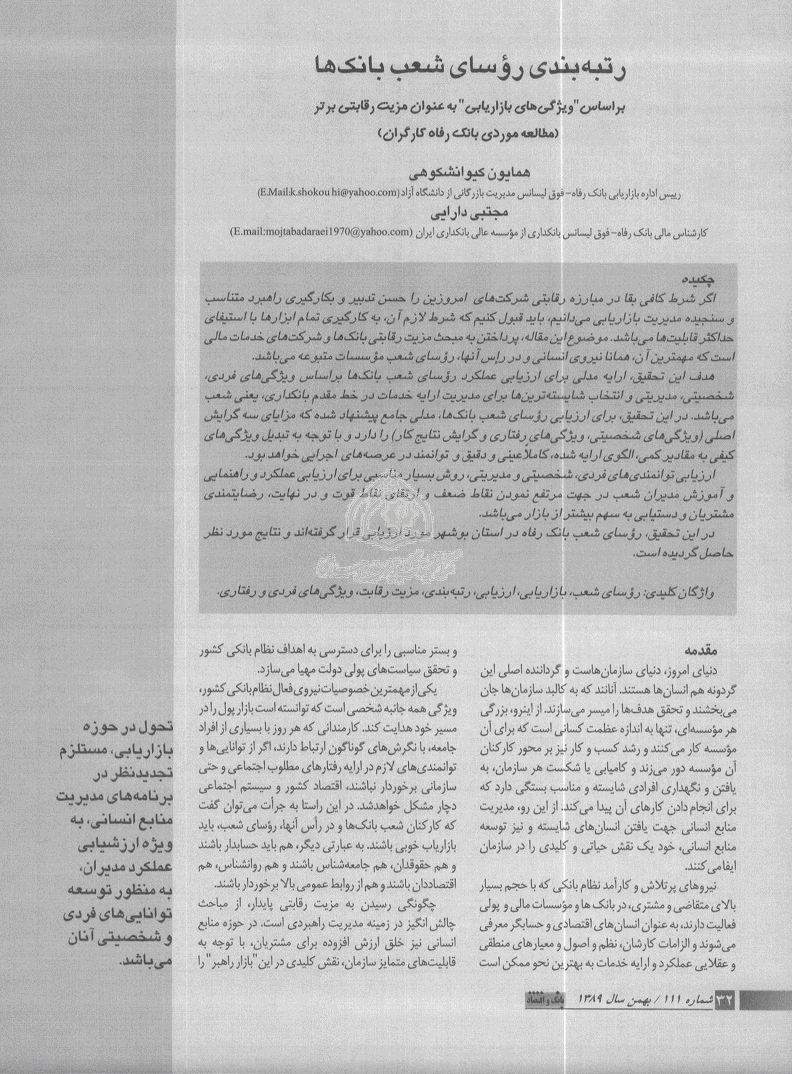 رتبه‌بندی رؤسای شعب بانک‌ها
براساس "ویژگی‌های بازاریابی" به عنوان مزیت رقابتی برتر
(مطالعه موردی بانک رفاه کارگران)
همایون کیوانشکوهی
رییس اداره بازاریابی بانک رفاه- فوق لیسانس مدیریت بازرگانی از دانشگاه آزاد (E.Mail:k.shokou hi@yahoo.com)
مجتبی دارایی
کارشناس مالی بانک رفاه- فوق لیسانس بانکداری از مؤسسه عالی بانکداری ایران (E.mail:mojtabadaraei1970@yahoo.com)
چکیده
اگر شرط کافی بقا در مبارزه رقابتی شرکت‌های امروزین را حسن تدبیر و بکارگیری راهبرد متناسب
و سنجیده مدیریت بازاریابی می‌دانیم، باید قبول کنیم که شرط لازم آن، به کارگیری تمام ابزارها با استیفای
حداکثر قابلیت‌ها می‌باشد. موضوع این مقاله، پرداختن به مبحث مزیت رقابتی بانک‌ها و شرکت‌های خدمات مالی
است که مهمترین آن، همانا نیروی انسانی و در رأس آنها، رؤسای شعب مؤسسات متبوعه می‌باشد.
هدف این تحقیق، ارایه مدلی برای ارزیابی عملکرد رؤسای شعب بانک‌ها براساس ویژگی‌های فردی،
شخصیتی، مدیریتی و انتخاب شایسته‌ترین‌ها برای مدیریت ارایه خدمات در خط مقدم بانکداری، یعنی شعب
می‌باشد. در این تحقیق، برای ارزیابی رؤسای شعب بانک‌ها، مدلی جامع پیشنهاد شده که مزایای سه گرایش
اصلی (ویژگی‌های شخصیتی، ویژگی‌های رفتاری و گرایش نتایج کار) را دارد و با توجه به تبدیل ویژگی‌های
کیفی به مقادیر کمی، الگوی ارایه شده، کاملاً عینی و دقیق و توانمند در عرصه‌های اجرایی خواهد بود.
ارزیابی توانمندی‌های فردی، شخصیتی و مدیریتی، روش بسیار مناسبی برای ارزیابی عملکرد و راهنمایی
و آموزش مدیران شعب در جهت مرتفع نمودن نقاط ضعف و ارتقای نقاط قوت و در نهایت، رضایتمندی
مشتریان و دستیابی به سهم بیشتر از بازار می‌باشد.
در این تحقیق، رؤسای شعب بانک رفاه در استان بوشهر مورد ارزیابی قرار گرفته‌اند و نتایج مورد نظر
حاصل گردیده است.
واژگان کلیدی: رؤسای شعب، بازاریابی، ارزیابی، رتبه‌بندی، مزیت رقابت، ویژگی‌های فردی و رفتاری.
مقدمه
دنیای امروز، دنیای سازمان‌هاست و گرداننده اصلی این
گردونه هم انسان‌ها هستند. آنانند که به کالبد سازمان‌ها جان
می‌بخشند و تحقق هدف‌ها را میسر می‌سازند. از اینرو، بزرگی
هر مؤسسه‌ای، تنها به اندازه عظمت کسانی است که برای آن
مؤسسه کار می‌کنند و رشد کسب و کار نیز بر محور کارکنان
آن مؤسسه دور می‌زند و کامیابی یا شکست هر سازمان، به
یافتن و نگهداری افرادی شایسته و مناسب بستگی دارد که
برای انجام دادن کارهای آن پیدا می‌کند. از این رو، مدیریت
منابع انسانی جهت یافتن انسان‌های شایسته و نیز توسعه
منابع انسانی، خود یک نقش حیاتی و کلیدی را در سازمان
ایفا می‌کنند.
نیروهای پرتلاش و کارآمد نظام بانکی که با حجم بسیار
بالای متقاضی و مشتری، در بانک ها و مؤسسات مالی و پولی
فعالیت دارند، به عنوان انسان‌های اقتصادی و حسابگر معرفی
می‌شوند و الزامات کارشان، نظم و اصول و معیارهای منطقی
و عقلایی عملکرد و ارایه خدمات به بهترین نحو ممکن است
و بستر مناسبی را برای دسترسی به اهداف نظام بانکی کشور
و تحقق سیاست‌های پولی دولت مهیا می‌سازد.
یکی از مهمترین خصوصیات نیروی فعال نظام بانکی کشور،
ویژگی همه جانبه شخصی است که توانسته است بازار پول را در
مسیر خود هدایت کند. کارمندانی که هر روز با بسیاری از افراد
جامعه، با نگرش‌های گوناگون ارتباط دارند، اگر از توانایی‌ها و
توانمندی‌های لازم در ارایه رفتارهای مطلوب اجتماعی و حتی
سازمانی برخوردار نباشند، اقتصاد کشور و سیستم اجتماعی
دچار مشکل خواهدشد. در این راستا به جرأت می‌توان گفت
که کارکنان شعب بانک‌ها و در رأس آنها، رؤسای شعب، باید
بازاریاب خوبی باشند. به عبارتی دیگر، هم باید حسابدار باشند
و هم حقوقدان، هم جامعه‌شناس باشند و هم روانشناس، هم
اقتصاددان باشند و هم از روابط عمومی بالا برخوردار باشند.
چگونگی رسیدن به مزیت رقابتی پایدار، از مباحث
چالش انگیز در زمینه مدیریت راهبردی است. در حوزه منابع
انسانی نیز خلق ارزش افزوده برای مشتریان، با توجه به
قابلیت‌های متمایز سازمان، نقش کلیدی در این "بازار راهبر" را
تحول در حوزه
بازاریابی، مستلزم
تجدیدنظر در
برنامه‌های مدیریت
منابع انسانی، به
ویژه ارزشیابی
عملکرد مدیران،
به منظور توسعه
توانایی‌های فردی
و شخصیتی آنان
می‌باشد.
۳۲ شماره ۱۱۱ / بهمن سال ۱۳۸۹ بانک و اقتصاد